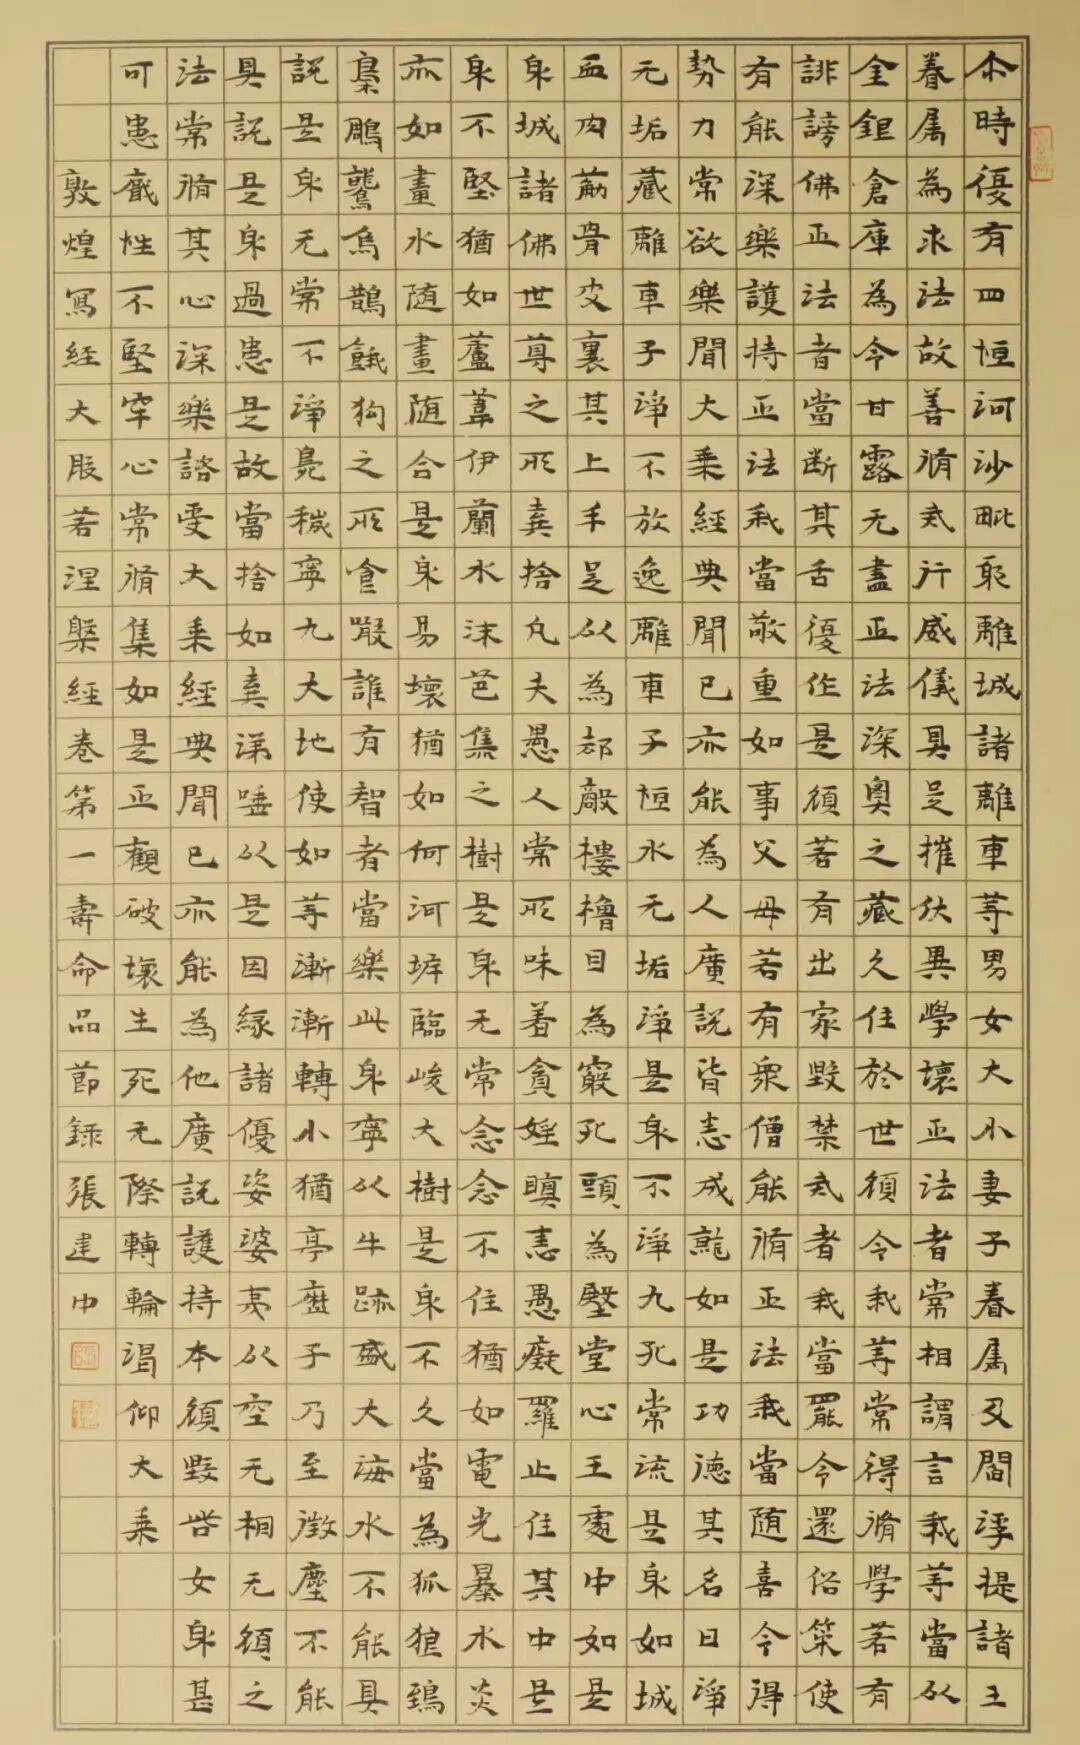 尒時復有四恒河沙毗耶離城諸離車等男女大小妻子眷属及閻浮提諸王
眷属為求法故善脩戒行威儀具足摧伏異學壞正法者常相謂言我等當以
金銀倉庫為令甘露无盡正法深奧之藏久住於世願令我等常得脩學若有
誹謗佛正法者當断其舌復作是願若有出家毀禁戒者我當罷令還俗策使
有能深樂護持正法我當敬重如事父母若有眾僧能脩正法我當随喜令得
勢力常欲樂聞大乗經典聞已亦能為人廣說皆悉成就如是功德其名曰淨
无垢藏離車子淨不放逸離車子恒水无垢淨是身不淨九孔常流是身如城
血肉荕骨皮裹其上手足以為却敵樓櫓目為竅孔頭為殿堂心王處中如是
身城諸佛世尊之所棄捨凡夫愚人常所味著貪婬瞋恚愚癡羅止住其中是
身不堅猶如蘆葦伊蘭水沫芭蕉之樹是身无常念念不住猶如電光暴水炎
亦如畫水随畫随合是身易壞猶如何河垿臨峻大樹是身不久當為狐狼鵄
梟鵰鷲烏鵲餓狗之所食噉誰有智者當樂此身寧以牛跡盛大海水不能具
說是身无常不淨臭穢寧九大地使如等漸漸轉小猶亭歷子乃至微塵不能
具說是身過患是故當捨如棄涕唾以是因緣諸優姿婆夷以空无相无願之
法常脩其心深樂諮受大乗經典聞已亦能為他廣說護持本願毀呰女身甚
可患厭性不堅牢心常脩集如是正觀破壞生死无際轉輪渴仰大乗
敦煌寫經大股若涅槃經卷第一壽命品節録張建中